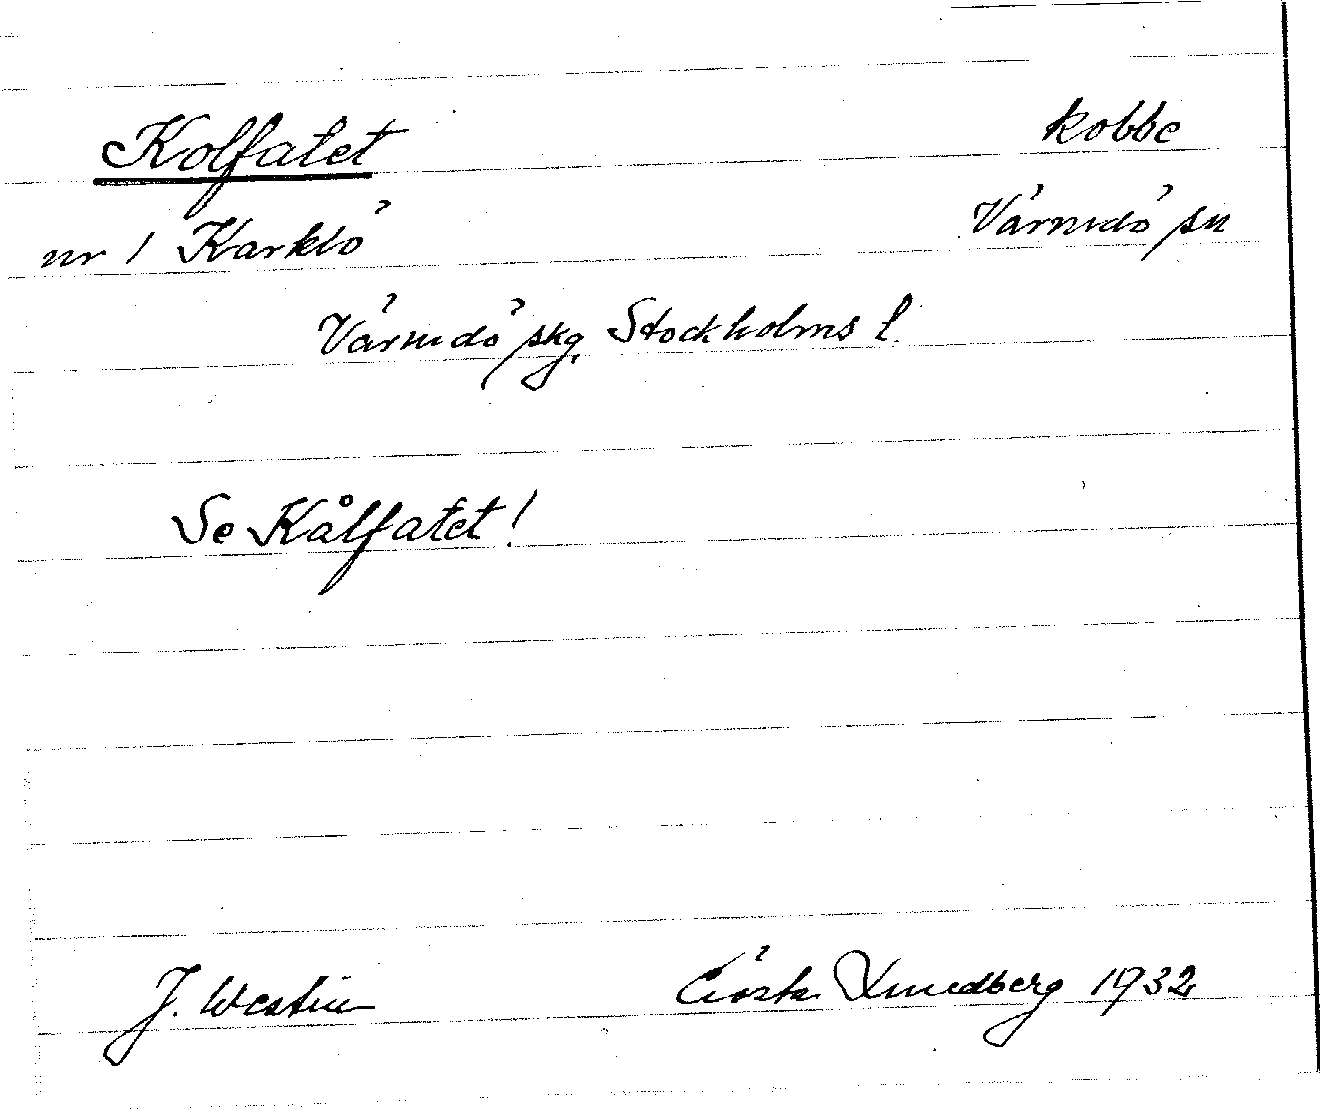 Kolfatet kobbe
nr 1 Karklö Värmdö sn
Värmdö skg, Stockholms l.
Se Kålfatet!
J. Westin Gösta Lundberg 1932